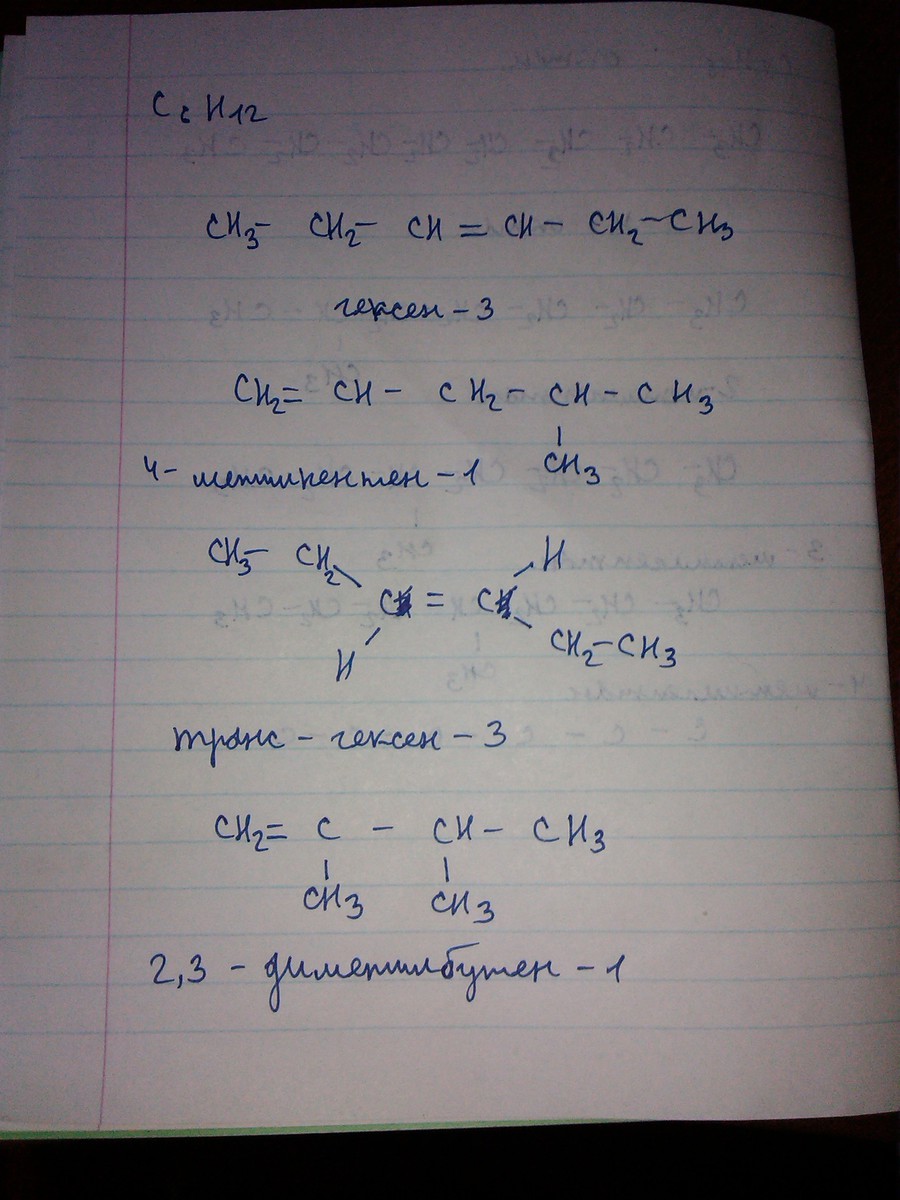 C₆H₁₂
CH₃- CH₂- CH = CH - CH₂-CH₃
гексен-3
CH₂= CH - CH₂- CH - CH₃
|
CH₃
4- метилпентен-1
CH₃- CH₂ H
\ /
C = C
/ \
H CH₂-CH₃
транс - гексен - 3
CH₂= C - CH - CH₃
| |
CH₃ CH₃
2,3 - диметилбутен - 1